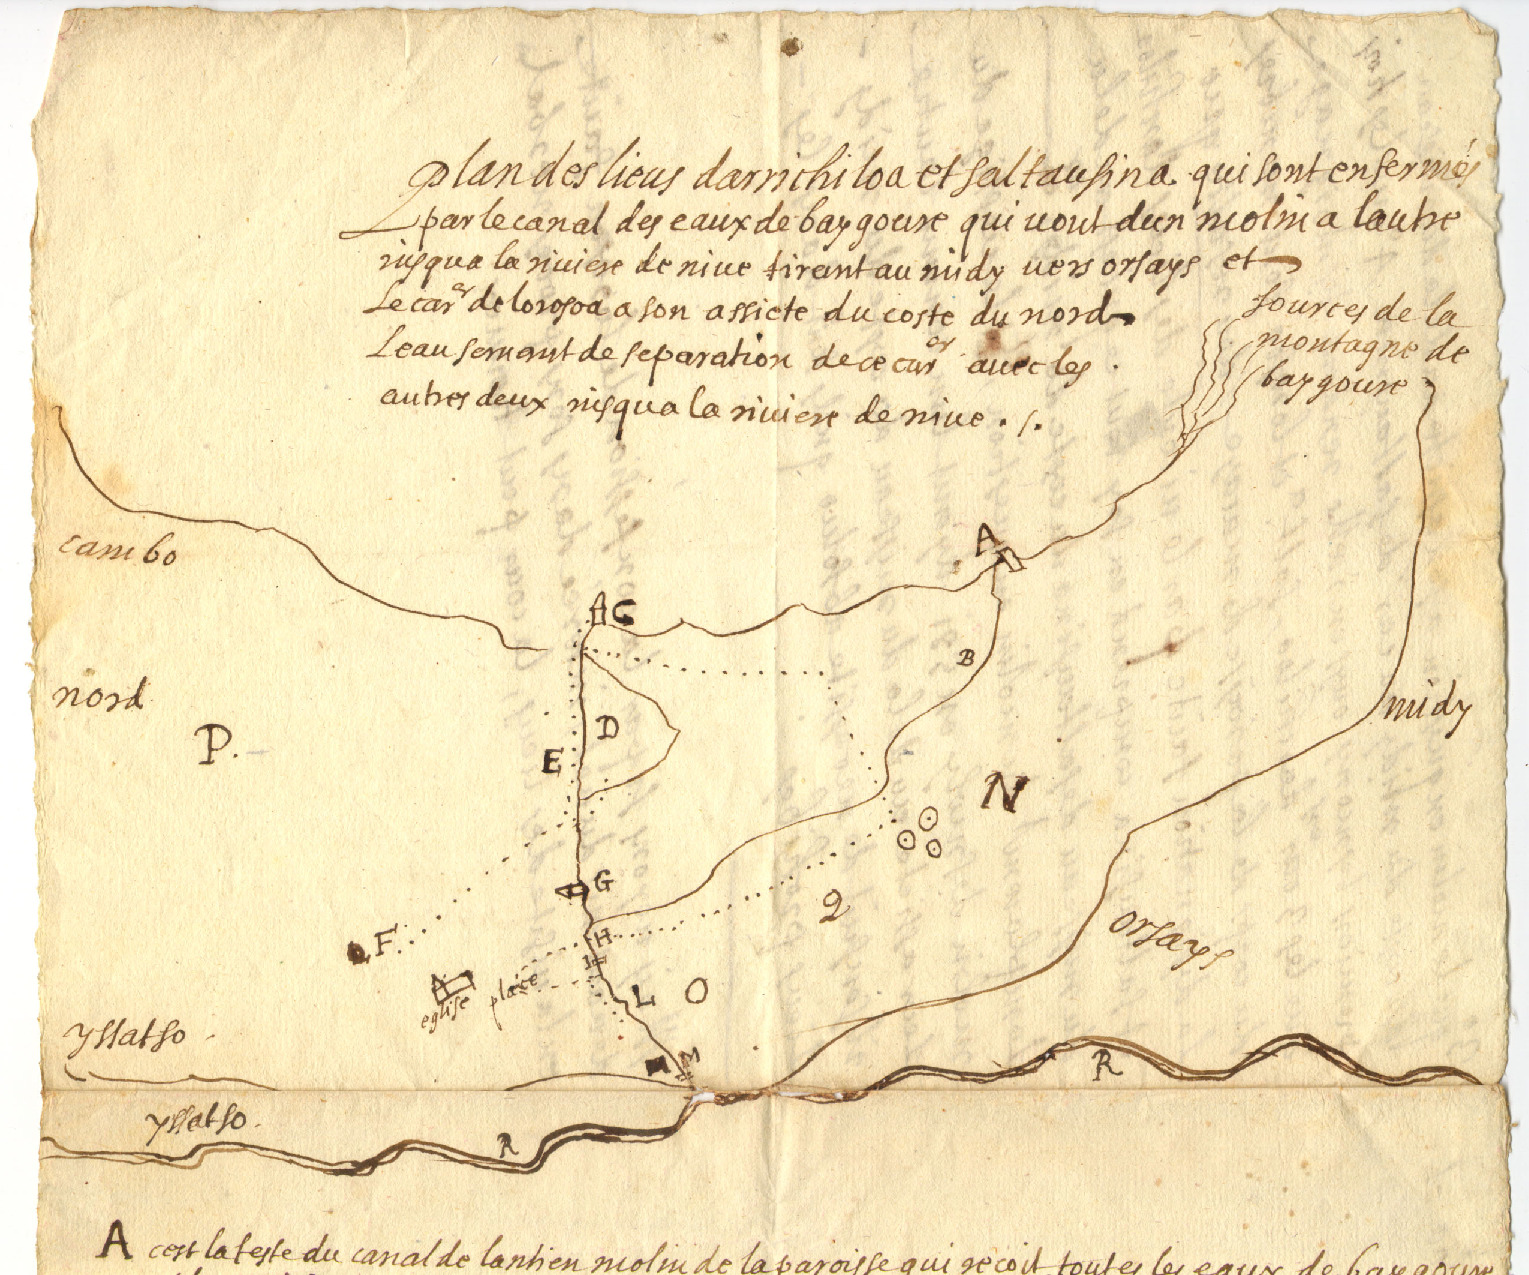 plan des lieus darrichiloa et saltausina qui sont enfermés
par le canal des eaux de baygoure qui vont dun molin a lautre
jusqua la riviere de nive tirant au midy vers orsays et
Le car^er de lorosoa a son assiete du costé du nord
Leau servant de separation de ce car^er avec les
autres deux jusqua la riviere de nive . /.
sources de la
montagne de
baygoure
cambo
A
A C
B
nord
midy
P.
D
E
N
G
2
F
H
I
orsays
eglise
place
L
O
yssatso
M
R
yssatso.
R
A cest la teste du canal de lantien molin de la paroisse qui recoit toutes les eaux de baygoure